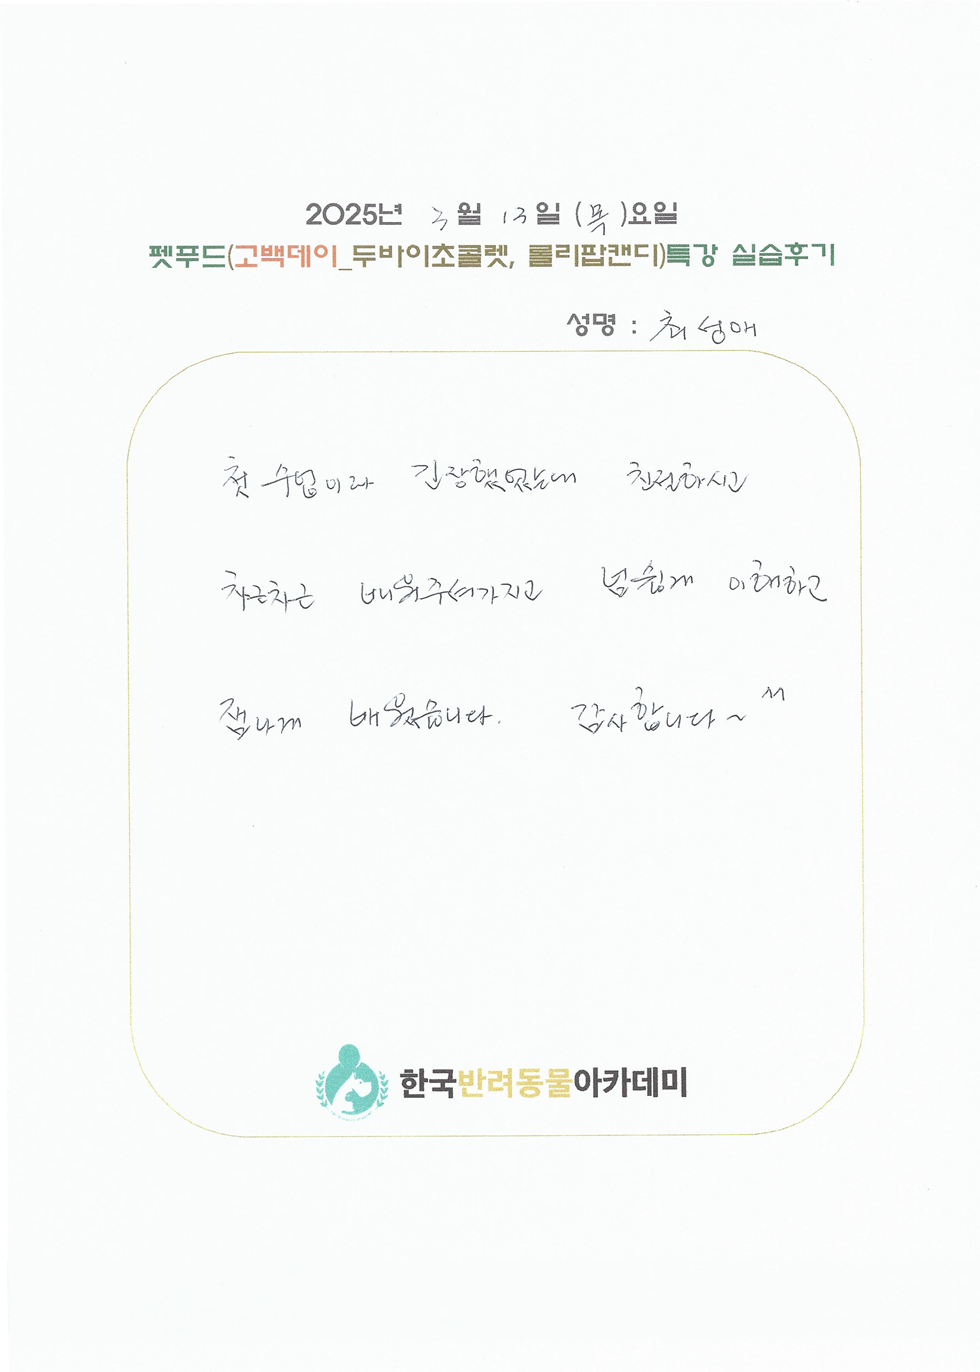 2025년 3월 13일 (목)요일
펫푸드(고백데이_두바이초콜렛, 롤리팝캔디)특강 실습후기
성명 : 최성애
첫 수업이라 긴장했었는데 친절하시고
차근차근 배워주셔가지고 넘 쉽게 이해하고
잼나게 배웠습니다. 감사합니다~^^
한국반려동물아카데미